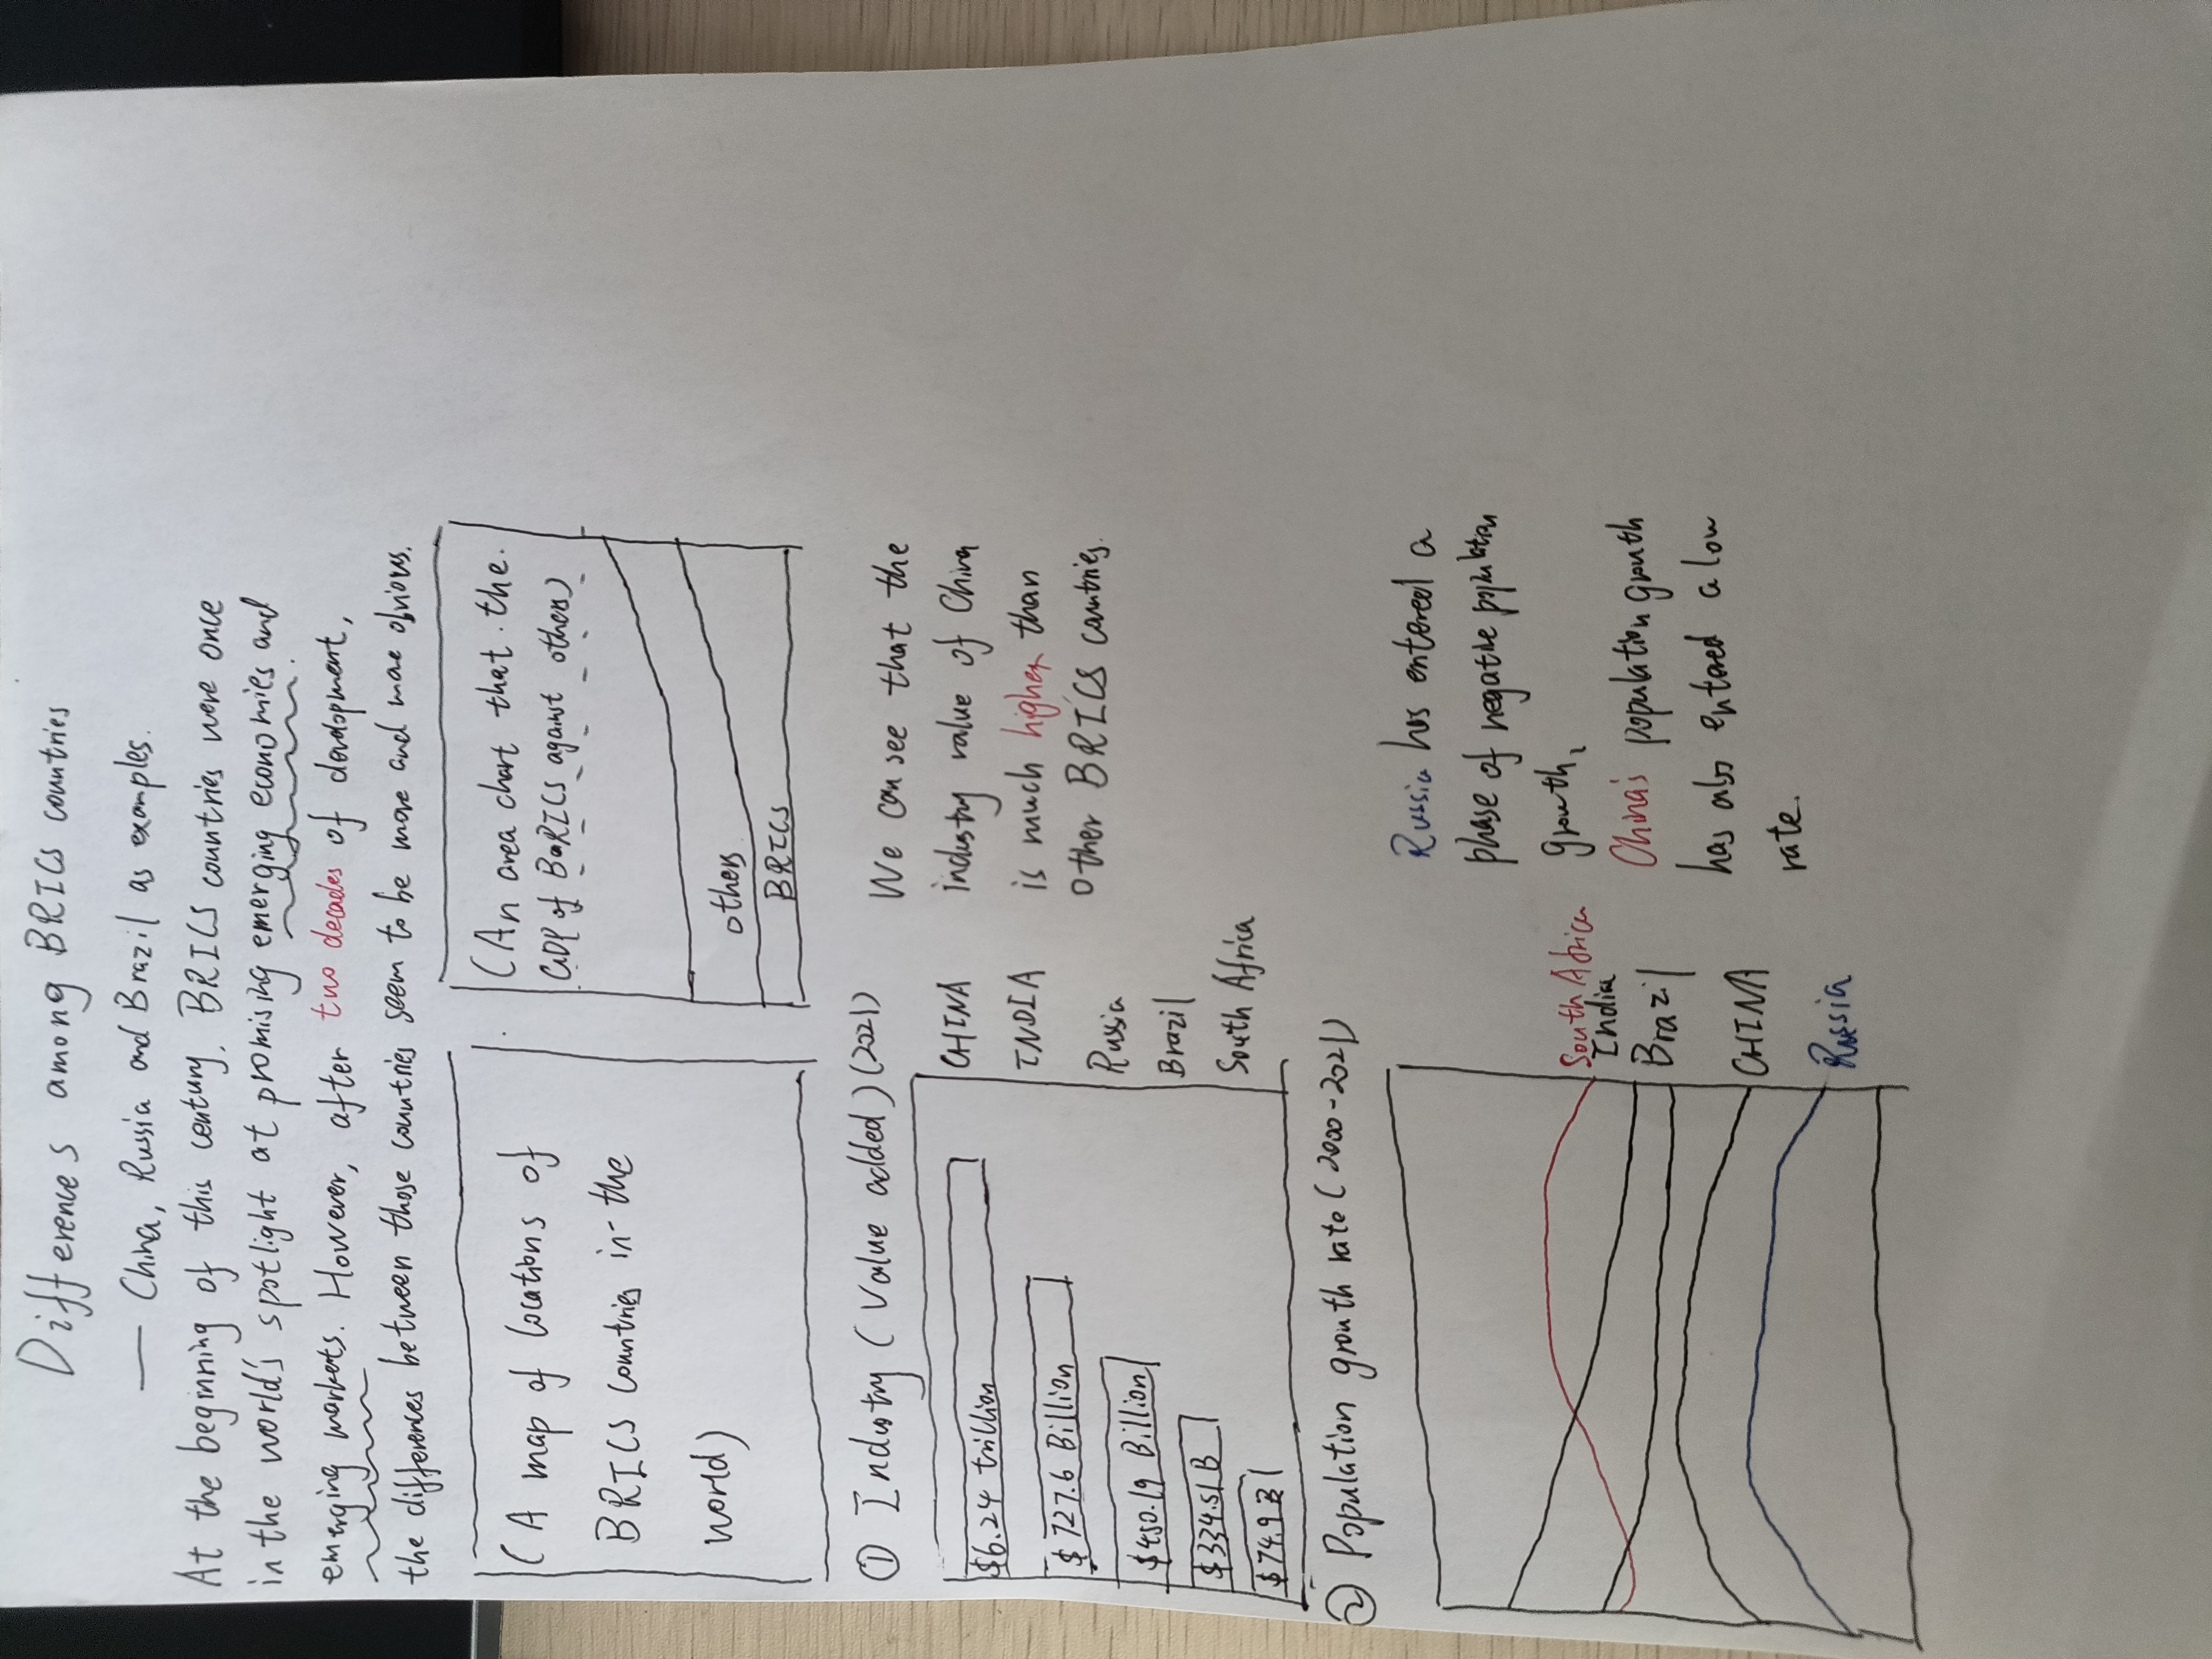 Differences among BRICS countries
— China, Russia and Brazil as examples.
At the beginning of this century, BRICS countries were once
in the world's spotlight at promising emerging economies and
emerging markets. However, after two decades of development,
the differences between those countries seem to be more and more obvious.
(A map of locations of
BRICS countries in the
world)
(An area chart that the
GDP of BaRICS against others)
others
BRICS
① Industry (Value added) (2021)
$6.24 trillion CHINA
$727.6 Billion INDIA
$450.19 Billion Russia
$334.51 B Brazil
$74.9 B South Africa
We can see that the
industry value of China
is much higher than
other BRICS countries.
② Population growth rate (2000-2021)
South Africa
India
Brazil
CHINA
Russia
Russia has entered a
phase of negative population
growth,
China's population growth
has also entered a low
rate.